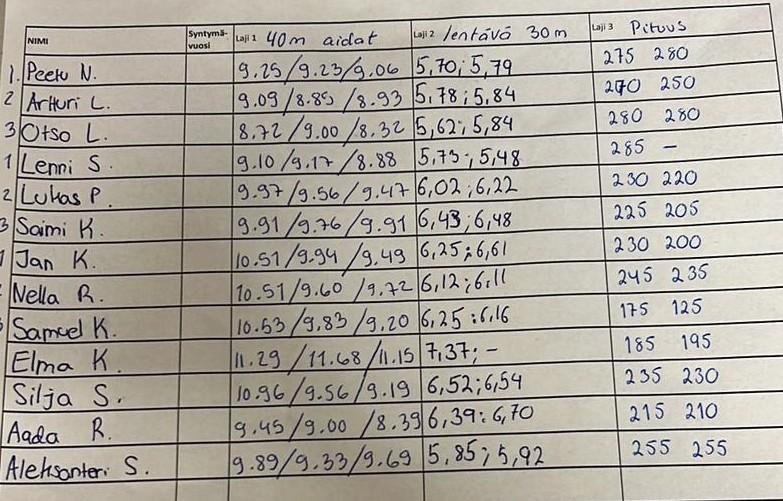 NIMI Syntymä-vuosi Laji 1 40m aidat Laji 2 lentävä 30m Laji 3 Pituus
1. Peetu N. 9.25/9.23/9.06 5,70; 5,79 275 280
2 Artturi L. 9.09/8.85/8.93 5,78; 5,84 270 250
3 Otso L. 8.72/9.00/8.32 5,62; 5,84 280 280
1 Lenni S. 9.10/9.17/8.88 5,73; 5,48 285 –
2 Lukas P. 9.97/9.56/9.47 6,02; 6,22 230 220
3 Saimi K. 9.91/9.76/9.91 6,43; 6,48 225 205
1 Jan K. 10.51/9.94/9.49 6,25; 6,61 230 200
Nella R. 10.51/9.60/9.72 6,12; 6,11 245 235
Samuel K. 10.53/9.83/9.20 6,25; 6,16 175 125
Elma K. 11.29/11.68/11.15 7,37; – 185 195
Silja S. 10.96/9.56/9.19 6,52; 6,54 235 230
Aada R. 9.45/9.00/8.39 6,39; 6,70 215 210
Aleksanteri S. 9.89/9.33/9.69 5,85; 5,92 255 255